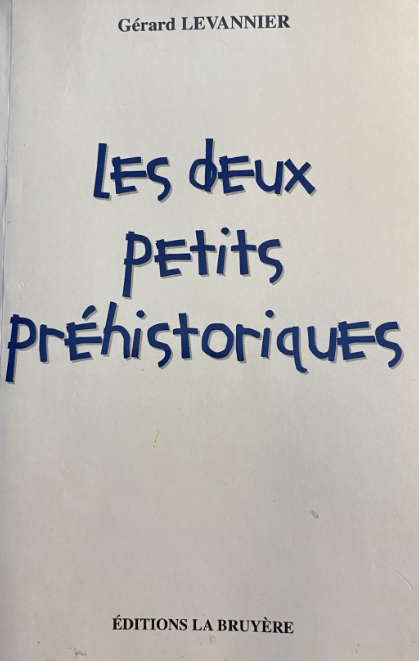 Gérard LEVANNIER
LES dEUX
PEtitS
PRÉhistoriquES
ÉDITIONS LA BRUYÈRE